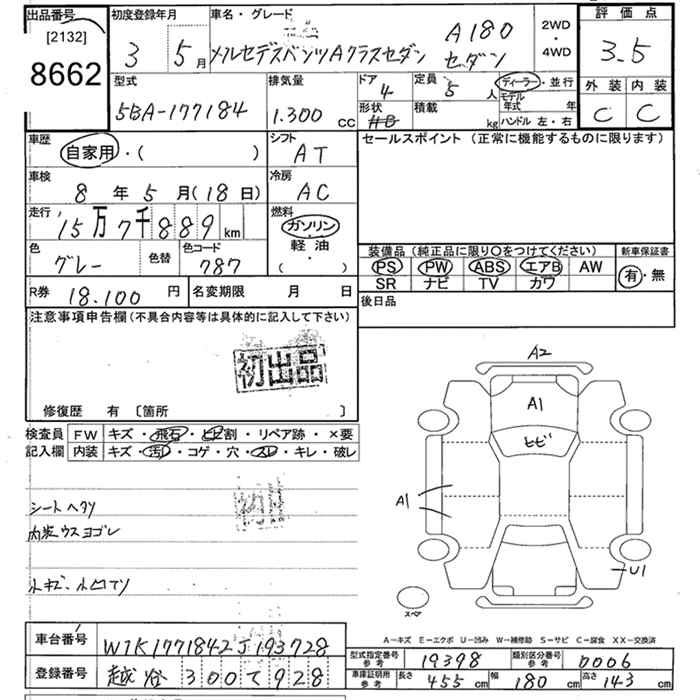 出品番号 初度登録年月 車名・グレード 評価点
[2132]
8662
3 5月 メルセデスベンツAクラスセダン A180 セダン 2WD・4WD 3.5
外装 内装
C C
型式 排気量 ドア 定員 ディーラー・並行
5BA-177184 1.300 cc 4 5 人 モデル年式 年
形状 積載 kg ハンドル 左・右
HB
車歴 シフト セールスポイント (正常に機能するものに限ります)
自家用・( ) AT
車検 冷房
8年5月(18日) AC
走行 燃料
15万7千889km ガソリン
軽油
・
( )
色 色替 色コード
グレー 787
装備品(純正品に限り○をつけてください) 新車保証書
PS PW ABS エアB AW 有・無
SR ナビ TV カワ
R券 18.100円 名変期限 月 日 後日品
注意事項申告欄(不具合内容等は具体的に記入して下さい)
初出品
修復歴 有 〔箇所 〕
検査員 FW キズ・飛石・ヒビ割・リペア跡・×要
記入欄 内装 キズ・汚レ・コゲ・穴・スレ・キレ・破レ
シートヘタリ
内装ウスヨゴレ
小キズ、小凹アリ
A2
A1
ヒビ
A1
U1
スペア
A−キズ E−エクボ U−凹み W−補修跡 S−サビ C−腐食 XX−交換済
車台番号 W1K1771842J193728
登録番号 越谷 300 て 928
型式指定番号 参考 19398 類別区分番号 参考 0006
車庫証明用 参考 長さ 455cm 幅 180cm 高さ 143cm